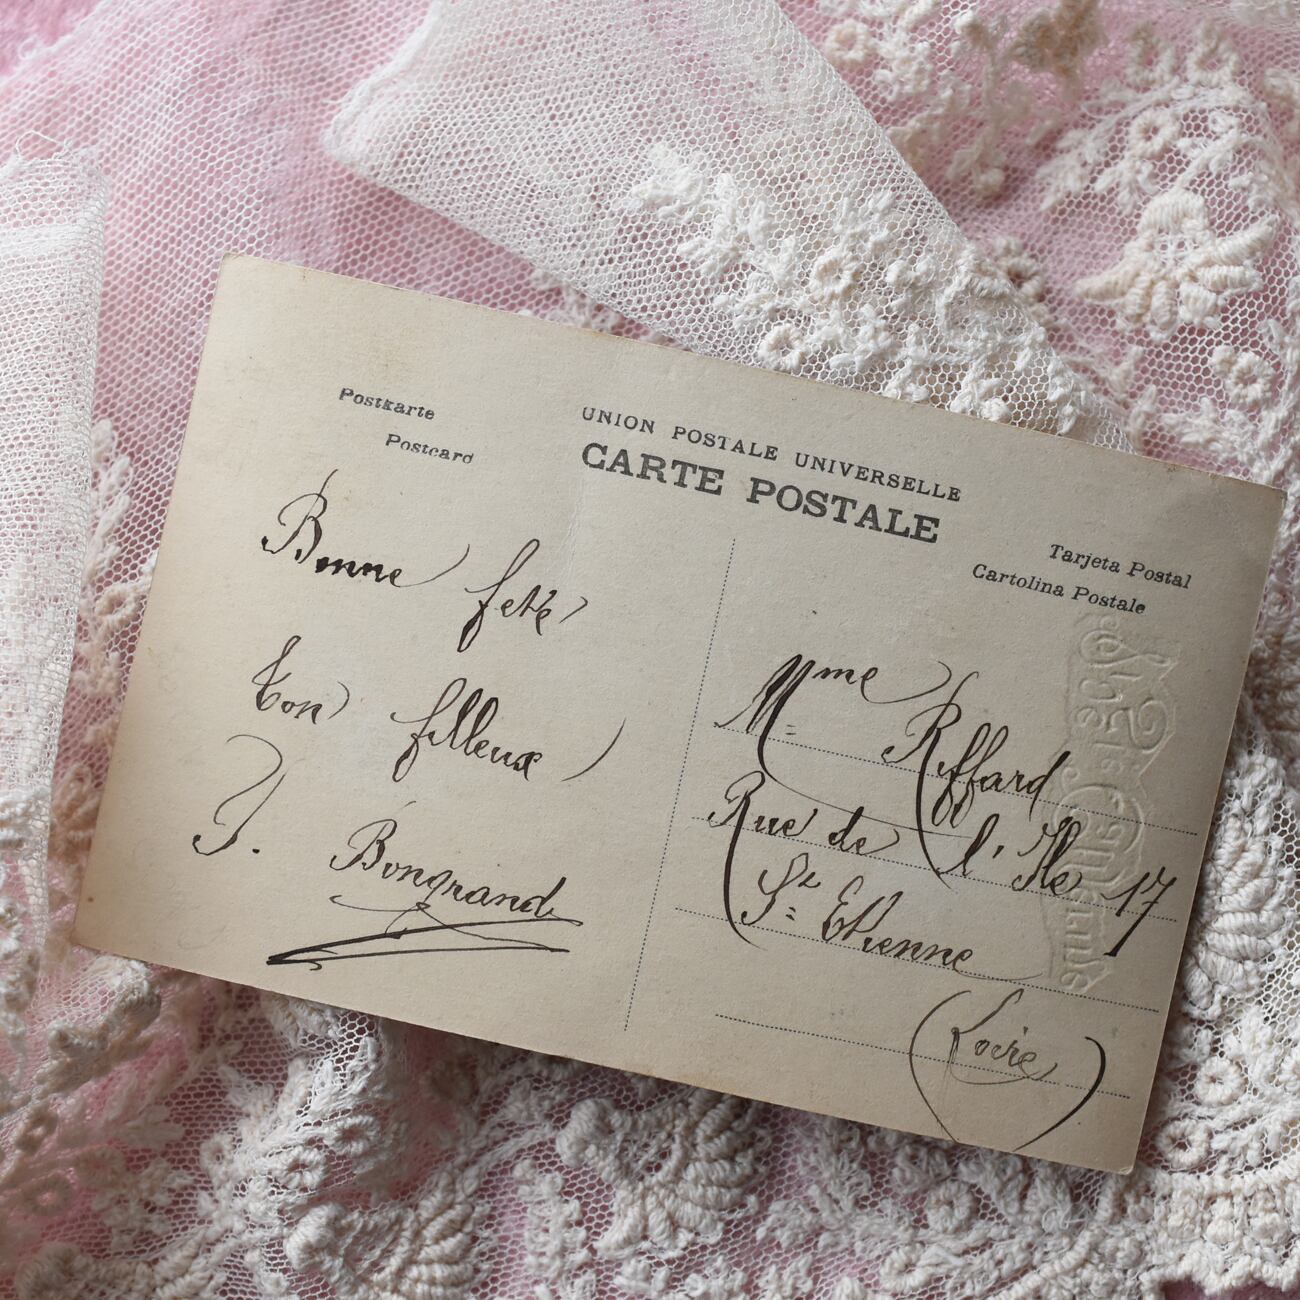 Postkarte
Postcard
UNION POSTALE UNIVERSELLE
CARTE POSTALE
Tarjeta Postal
Cartolina Postale
Bonne fête
Ton filleux
J. Bongrand
Mme Riffard
Rue de l'Ile 17
St Etienne
(Loire)